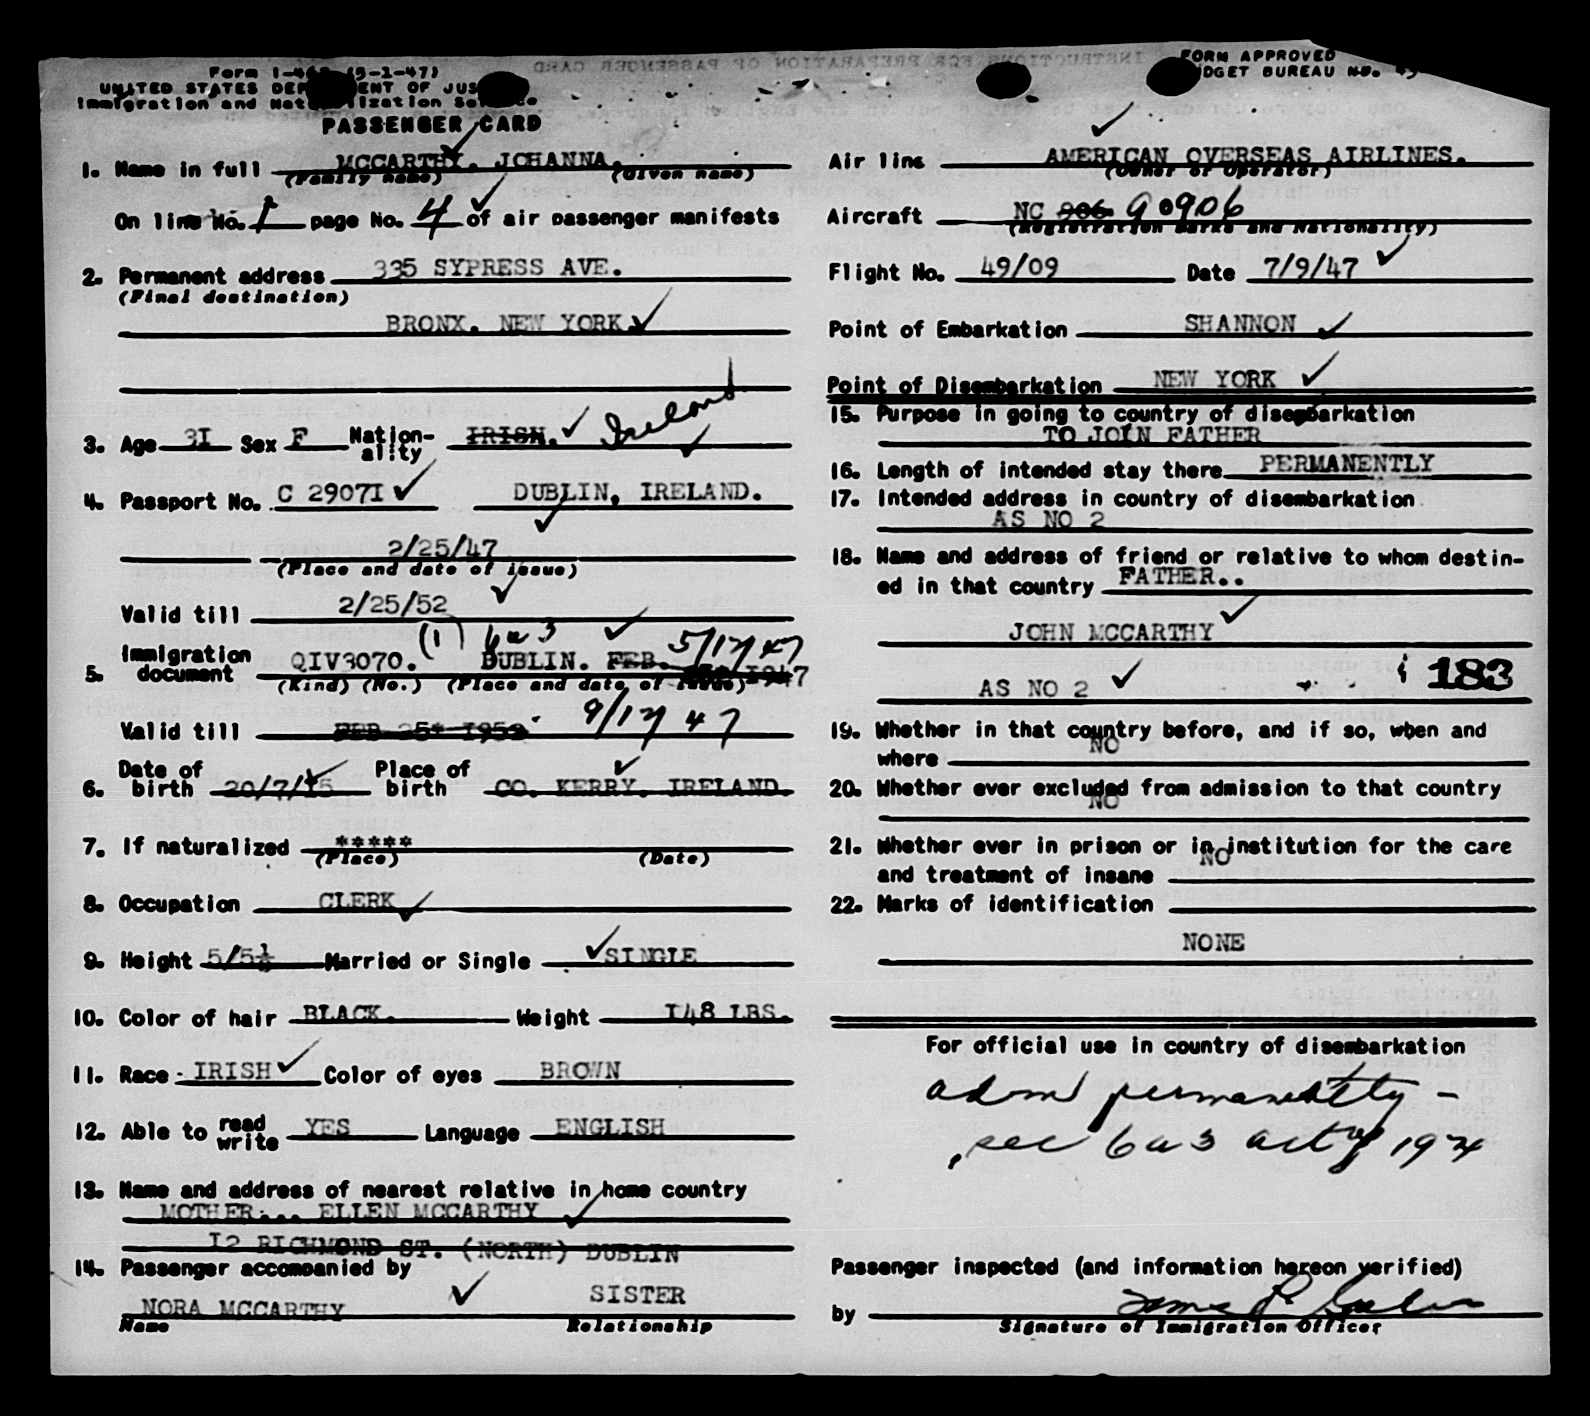 Form I-466 (5-1-47)
UNITED STATES DEPARTMENT OF JUSTICE
Immigration and Naturalization Service
PASSENGER CARD
FORM APPROVED
BUDGET BUREAU NO. 43
INSTRUCTIONS FOR PREPARATION OF PASSENGER CARD
1. Name in full MCCARTHY, JOHANNA.
(Family name) (Given name)
On line No. 1 page No. 4 of air passenger manifests
2. Permanent address 335 SYPRESS AVE.
(Final destination)
BRONX. NEW YORK.
3. Age 3I Sex F Nation-ality IRISH. Ireland
4. Passport No. C 2907I DUBLIN, IRELAND.
2/25/47
(Place and date of issue)
Valid till 2/25/52
(1) 6a3 5/17/47
5. Immigration document QIV3070. DUBLIN. FEB. 1947
(Kind) (No.) (Place and date of issue)
Valid till FEB 25* 1952 9/17 47
6. Date of birth 20/7/I5 Place of birth CO. KERRY. IRELAND.
7. If naturalized *****
(Place) (Date)
8. Occupation CLERK
9. Height 5/5½ Married or Single SINGLE
10. Color of hair BLACK. Weight I48 LBS.
11. Race IRISH Color of eyes BROWN
12. Able to read write YES Language ENGLISH
13. Name and address of nearest relative in home country
MOTHER... ELLEN MCCARTHY
I2 RICHMOND ST. (NORTH) DUBLIN
14. Passenger accompanied by
NORA MCCARTHY SISTER
Name Relationship
Air line AMERICAN OVERSEAS AIRLINES.
(Owner or Operator)
Aircraft NC 906 90906
(Registration marks and Nationality)
Flight No. 49/09 Date 7/9/47
Point of Embarkation SHANNON
Point of Disembarkation NEW YORK
15. Purpose in going to country of disembarkation
TO JOIN FATHER
16. Length of intended stay there PERMANENTLY
17. Intended address in country of disembarkation
AS NO 2
18. Name and address of friend or relative to whom destin-
ed in that country FATHER..
JOHN MCCARTHY
AS NO 2 183
19. Whether in that country before, and if so, when and
where NO
20. Whether ever excluded from admission to that country
NO
21. Whether ever in prison or in institution for the care
and treatment of insane NO
22. Marks of identification
NONE
For official use in country of disembarkation
adm permanently –
sec 6a3 act of 1924
Passenger inspected (and information hereon verified)
by
Signature of Immigration Officer